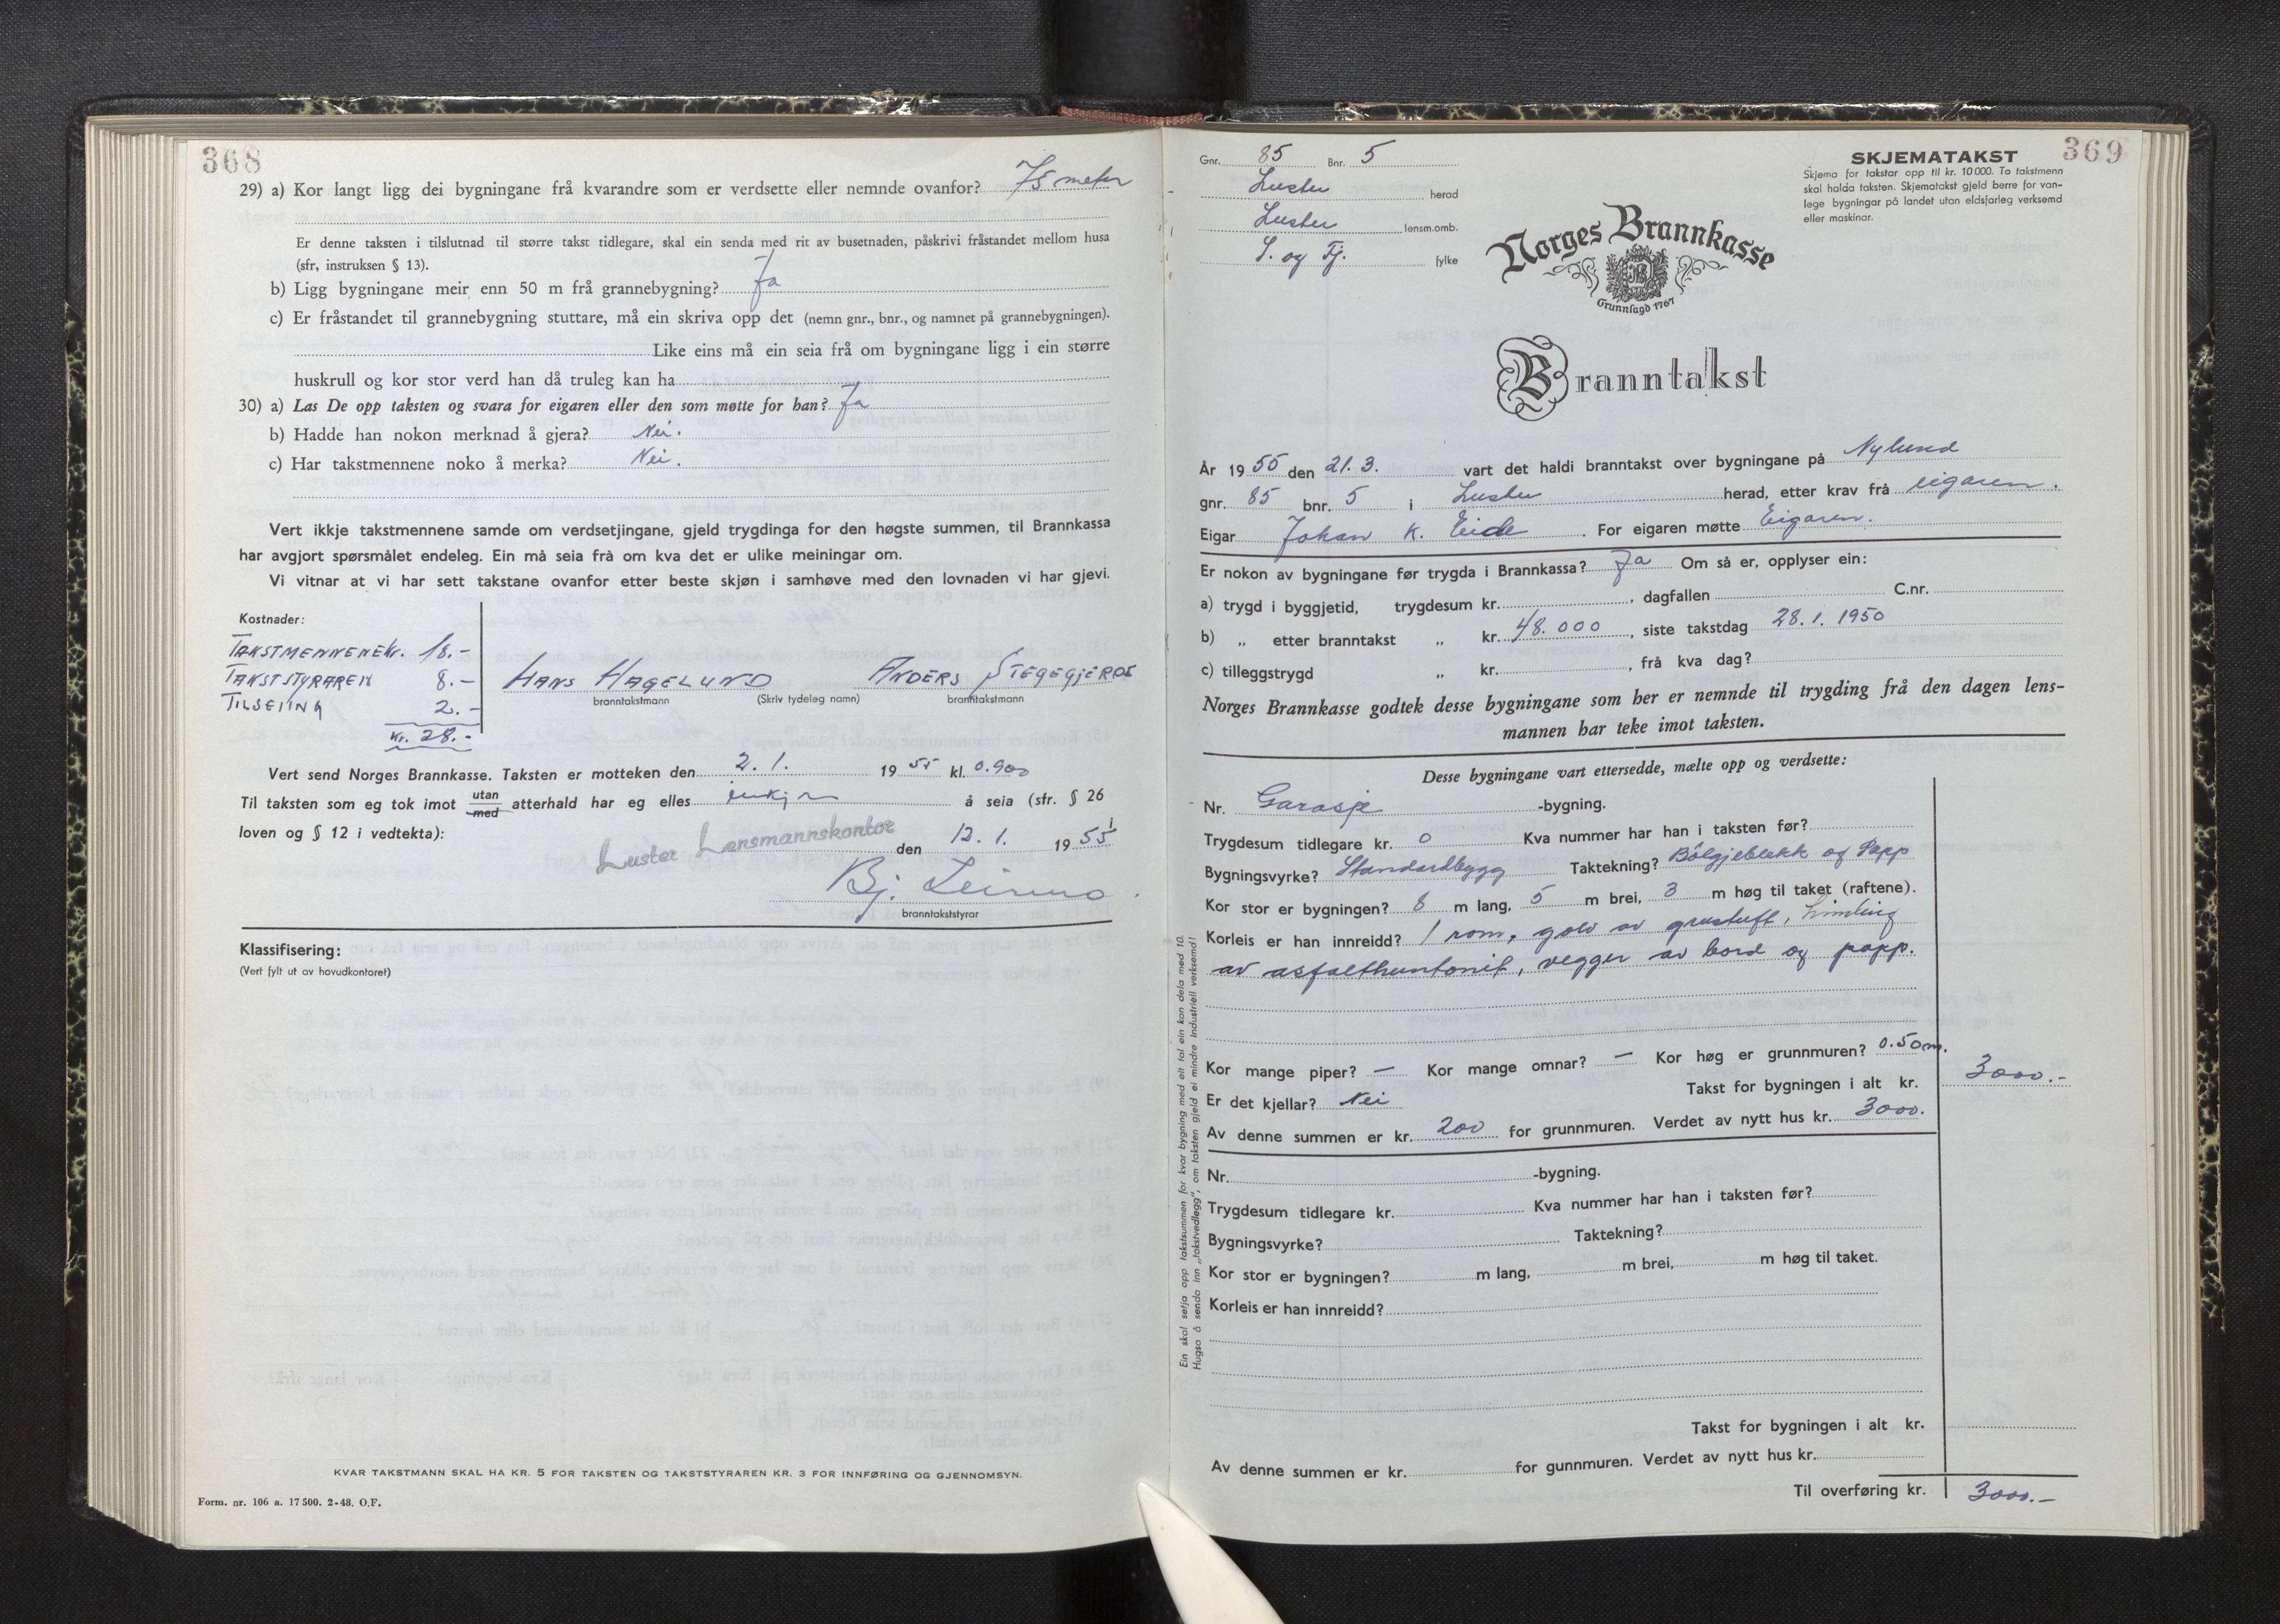 368
29) a) Kor langt ligg dei bygningane frå kvarandre som er verdsette eller nemnde ovanfor? 75 meter
Er denne taksten i tilslutnad til større takst tidlegare, skal ein senda med rit av busetnaden, påskrivi fråstandet mellom husa
(sfr, instruksen § 13).
b) Ligg bygningane meir enn 50 m frå grannebygning? Ja
c) Er fråstandet til grannebygning stuttare, må ein skriva opp det (nemn gnr., bnr., og namnet på grannebygningen).
Like eins må ein seia frå om bygningane ligg i ein større
huskrull og kor stor verd han då truleg kan ha
30) a) Las De opp taksten og svara for eigaren eller den som møtte for han? Ja
b) Hadde han nokon merknad å gjera? Nei.
c) Har takstmennene noko å merka? Nei.
Vert ikkje takstmennene samde om verdsetjingane, gjeld trygdinga for den høgste summen, til Brannkassa
har avgjort spørsmålet endeleg. Ein må seia frå om kva det er ulike meiningar om.
Vi vitnar at vi har sett takstane ovanfor etter beste skjøn i samhøve med den lovnaden vi har gjevi.
Kostnader:
TAKSTMENNENE kr. 18.-
TAKSTSTYRAREN 8.-
TILSEIING 2.-
Kr. 28.-
HANS HAGELUND ANDERS STEGEGJERDE
branntakstmann (Skriv tydeleg namn) branntakstmann
Vert send Norges Brannkasse. Taksten er motteken den 2. 1. 1955 kl. 0.900
Til taksten som eg tok imot utan/med atterhald har eg elles å seia (sfr. § 26 i
loven og § 12 i vedtekta):
Luster Lensmannskontor den 12. 1. 1955
Bj. Leirmo
branntakststyrar
Klassifisering:
(Vert fylt ut av hovudkontoret)
KVAR TAKSTMANN SKAL HA KR. 5 FOR TAKSTEN OG TAKSTSTYRAREN KR. 3 FOR INNFØRING OG GJENNOMSYN.
Form. nr. 106 a. 17 500. 2-48. O.F.
369
Gnr. 85 Bnr. 5
Luster herad
Luster lensm.omb.
S. og Fj. fylke
SKJEMATAKST
Skjema for takstar opp til kr. 10 000. To takstmenn
skal halda taksten. Skjematakst gjeld berre for van-
lege bygningar på landet utan eldsfarleg verksemd
eller maskinar.
Norges Brannkasse
Grunnlagd 1767
Branntakst
År 1955 den 21. 3. vart det haldi branntakst over bygningane på Nylund
gnr. 85 bnr. 5 i Luster herad, etter krav frå eigaren.
Eigar Johan K. Eide. For eigaren møtte Eigaren.
Er nokon av bygningane før trygda i Brannkassa? Ja Om så er, opplyser ein:
a) trygd i byggjetid, trygdesum kr. , dagfallen C.nr.
b) „ etter branntakst „ kr. 48.000, siste takstdag 28. 1. 1950
c) tilleggstrygd „ kr. , frå kva dag?
Norges Brannkasse godtek desse bygningane som her er nemnde til trygding frå den dagen lens-
mannen har teke imot taksten.
Desse bygningane vart ettersedde, mælte opp og verdsette:
Nr. Garasje -bygning.
Trygdesum tidlegare kr. 0 Kva nummer har han i taksten før?
Bygningsvyrke? Standardbygg Taktekning? Bölgjeblekk og Papp
Kor stor er bygningen? 8 m lang, 5 m brei, 3 m høg til taket (raftene).
Korleis er han innreidd? 1 rom, golv av grustuft, himling
av asfalthuntonit, vegger av bord og papp.
Kor mange piper? — Kor mange omnar? — Kor høg er grunnmuren? 0.50 m.
Er det kjellar? Nei Takst for bygningen i alt kr. 3000.-
Av denne summen er kr. 200 for grunnmuren. Verdet av nytt hus kr. 3000.
Nr. -bygning.
Trygdesum tidlegare kr. Kva nummer har han i taksten før?
Bygningsvyrke? Taktekning?
Kor stor er bygningen? m lang, m brei, m høg til taket.
Korleis er han innreidd?
Takst for bygningen i alt kr.
Av denne summen er kr. for gunnmuren. Verdet av nytt hus kr.
Til overføring kr. 3000.-
Ein skal setja opp takstsummen for kvar bygning med eit tal ein kan dela med 10.
Hugsa å senda inn „takstvedlegg", om taksten gjeld ei mindre industriell verksemd!